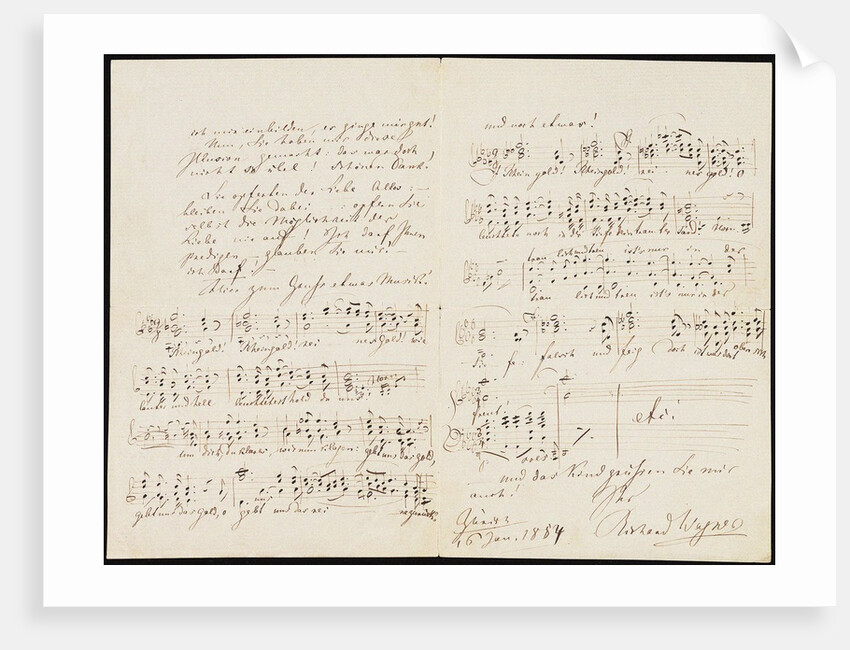 ich mir einbilden, es ginge mir gut!
Nun, Sie haben mir diese
Illusion gemacht: das war doch
nicht so übel! Schönen Dank!
Sie opferten der Liebe Alles: —
bleiben Sie dabei — opfern Sie
selbst die Möglichkeit der
Liebe nie auf! Ich darf Ihnen
predigen — glauben Sie mir! —
ich darf! —
zum etwas Musik:
Rheingold! Rheingold! rei nes Gold! wie
lauter und hell leuchtetest hold du uns!
um dich, du klares, wir nun klagen: gebt uns das Gold,
gebt uns das Gold, o gebt uns das rei ne zurück!
und noch etwas!
Rheingold! Rheingold! rei nes Gold! o
leuchtete noch in der Tiefe dein laut'rer Tand!
traulich und treu ist's nur in der
traulich und treu ist's nur in der
Tie fe: falsch und feig doch ist was dort oben sich
freut!
etc:
und das Kind grüßen Sie mir
auch!
Ihr
Richard Wagner
Zürich
16 Jan. 1854